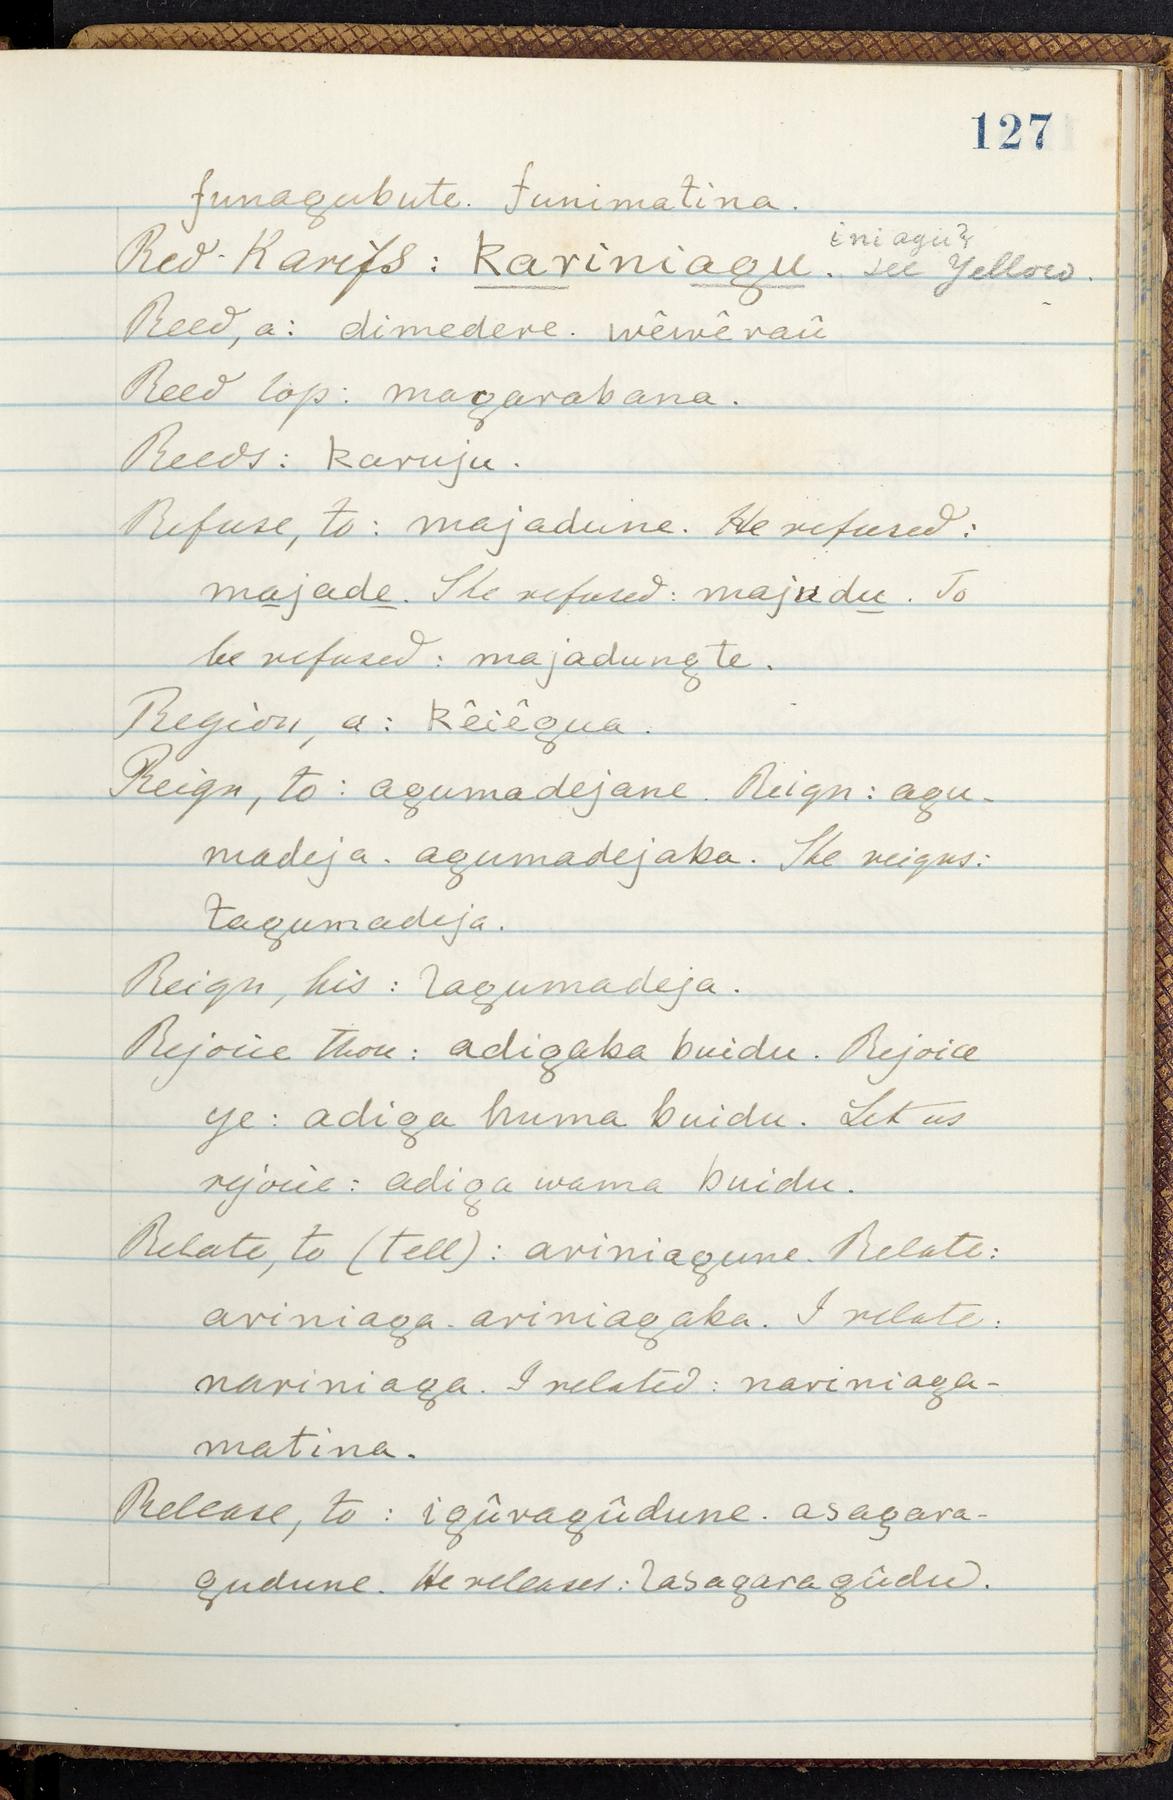 127
funagubute. funimatina.
iniagu?
Red-Karifs: kariniagu. see Yellow.
Reed, a: dimedere. wêwêraû
Reed top: magarabana.
Reeds: karuju.
Refuse, to: majadune. He refused:
majade. She refused: majadu. To
be refused: majadungte.
Region, a: kêiêgua.
Reign, to: agumadejane. Reign: agu-
madeja. agumadejaka. She reigns:
tagumadeja.
Reign, his: lagumadeja.
Rejoice thou: adigaka buidu. Rejoice
ye: adiga huma buidu. Let us
rejoice: adiga wama buidu.
Relate, to (tell): ariniagune. Relate:
ariniaga. ariniagaka. I relate:
nariniaga. I related: nariniaga-
matina.
Release, to: igûragûdune. asagara-
gudune. He releases: lasagaragûdu.